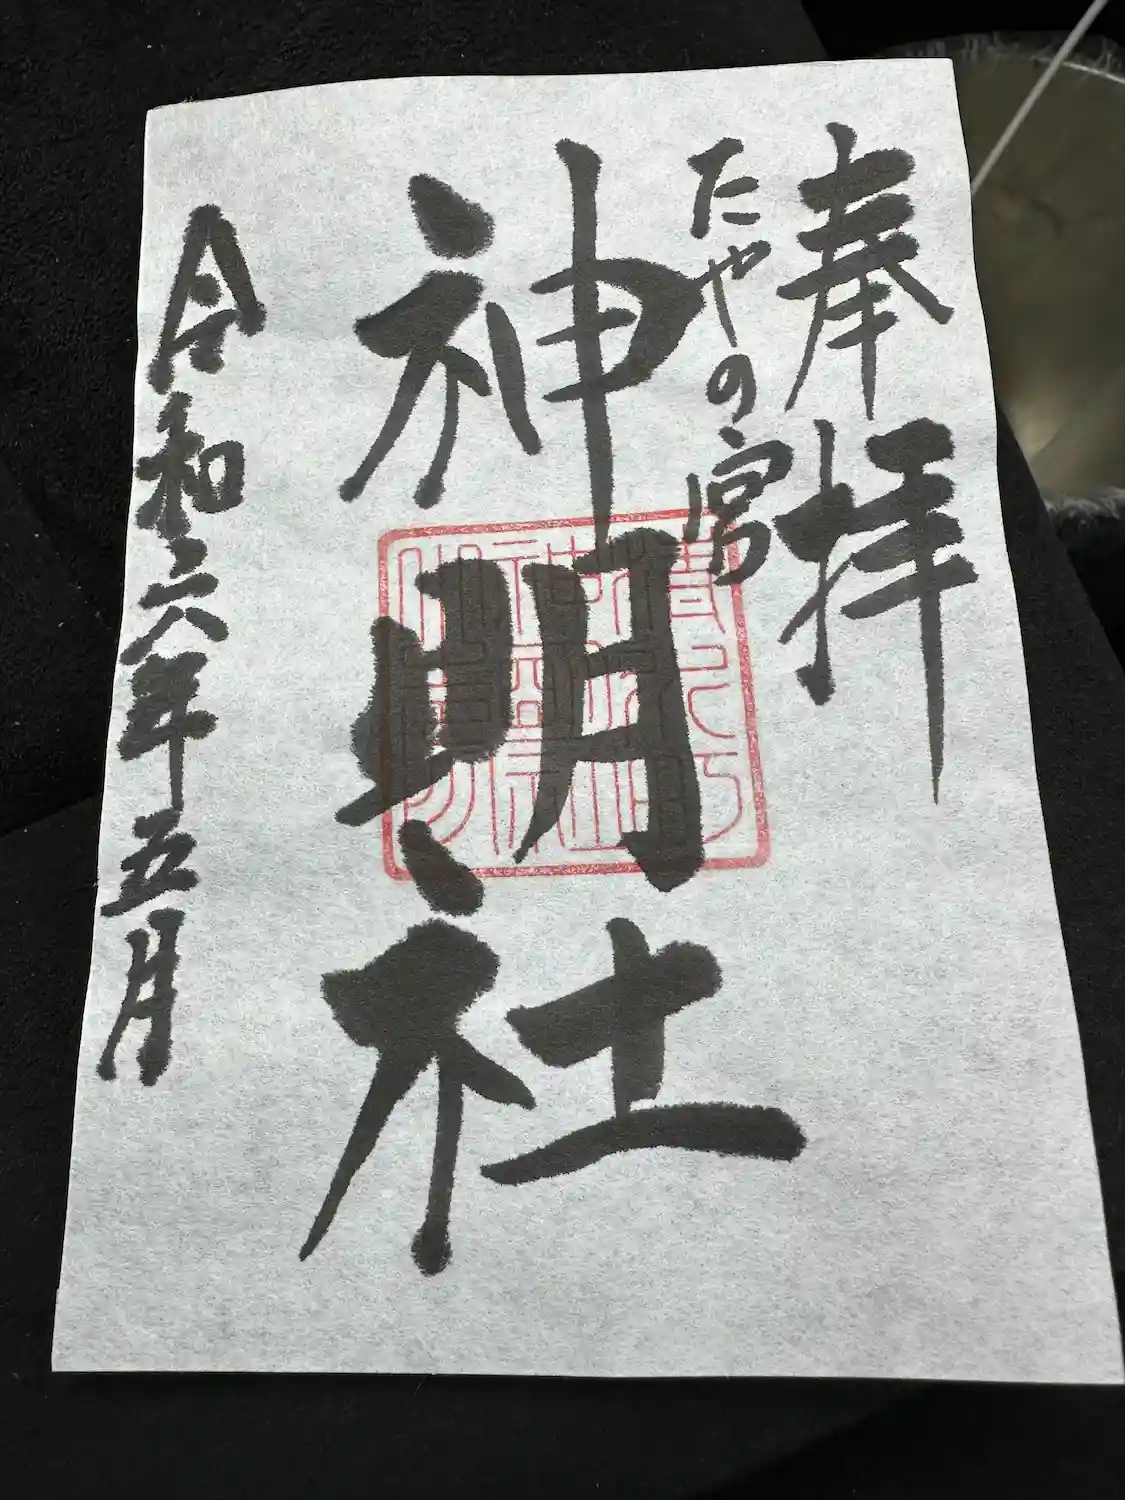 奉拝
たやの宮
神明社
令和六年五月